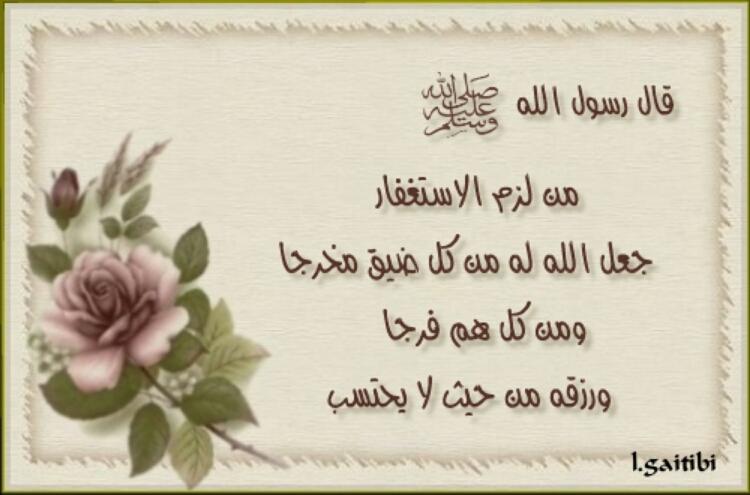 قال رسول الله ﷺ
من لزم الاستغفار
جعل الله له من كل ضيق مخرجا
ومن كل هم فرجا
ورزقه من حيث لا يحتسب
l.gaitibi